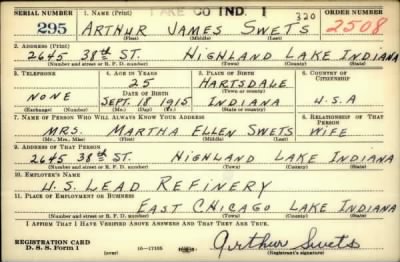 LAKE CO IND. 1
SERIAL NUMBER 1. NAME (Print) ORDER NUMBER
295 ARTHUR JAMES SWETS 320 2508
(First) (Middle) (Last)
2. ADDRESS (Print)
2645 38th ST. HIGHLAND LAKE INDIANA
(Number and street or R. F. D. number) (Town) (County) (State)
3. TELEPHONE 4. AGE IN YEARS 5. PLACE OF BIRTH 6. COUNTRY OF CITIZENSHIP
25 HARTSDALE
NONE DATE OF BIRTH (Town or county)
SEPT. 18 1915 INDIANA U.S.A
(Exchange) (Number) (Mo.) (Day) (Yr.) (State or country)
7. NAME OF PERSON WHO WILL ALWAYS KNOW YOUR ADDRESS 8. RELATIONSHIP OF THAT PERSON
MRS. MARTHA ELLEN SWETS WIFE
(Mr., Mrs., Miss) (First) (Middle) (Last)
9. ADDRESS OF THAT PERSON
2645 38th ST. HIGHLAND LAKE INDIANA
(Number and street or R. F. D. number) (Town) (County) (State)
10. EMPLOYER'S NAME
U.S. LEAD REFINERY
11. PLACE OF EMPLOYMENT OR BUSINESS
EAST CHICAGO LAKE INDIANA
(Number and street or R. F. D. number) (Town) (County) (State)
I AFFIRM THAT I HAVE VERIFIED ABOVE ANSWERS AND THAT THEY ARE TRUE.
REGISTRATION CARD
D. S. S. Form 1 16—17105 Arthur Swets
(over) (Registrant's signature)